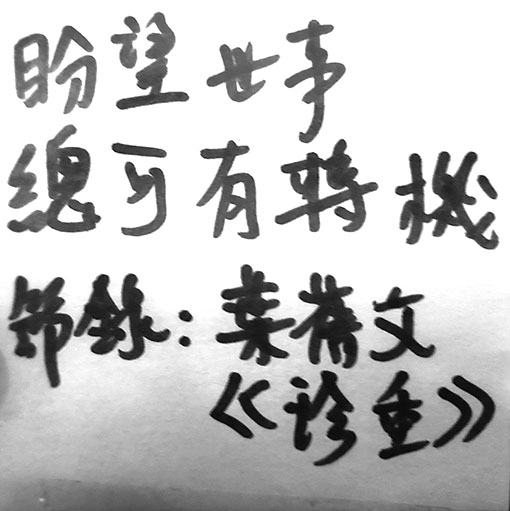 盼望世事
總可有轉機
節錄：葉蒨文
《珍重》